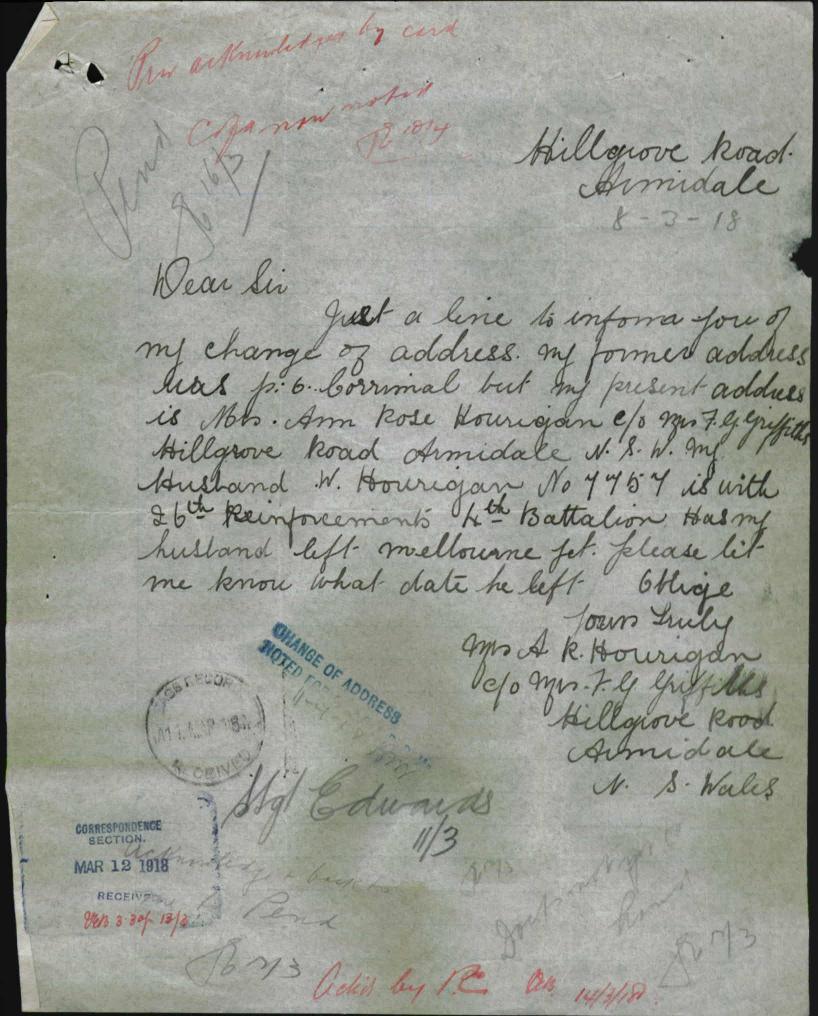 Prev acknowledged by card
C of A now noted
18/4
Pend
16/3
Hillgrove Road.
Armidale
8-3-18
Dear Sir
Just a line to inform you of
my change of address. my former address
was p. o. Corrimal but my present address
is Mrs. Ann Rose Hourigan c/o Mrs F. G. Griffiths
Hillgrove Road Armidale N. S. W. My
Husband W. Hourigan No 7757 is with
26th Reinforcements 4th Battalion. Has my
husband left melbourne yet. please let
me know what date he left Oblige
Yours Truly
Mrs A R. Hourigan
c/o Mrs. F. G Griffiths
Hillgrove Road
Armidale
N. S. Wales
CHANGE OF ADDRESS
NOTED
RECEIVED
Sgt Edwards
11/3
CORRESPONDENCE
SECTION.
MAR 12 1918
RECEIVED
Acknowledge & back to
Pend
Docts not yet to
hand
Ackd by PC 14/3/18.